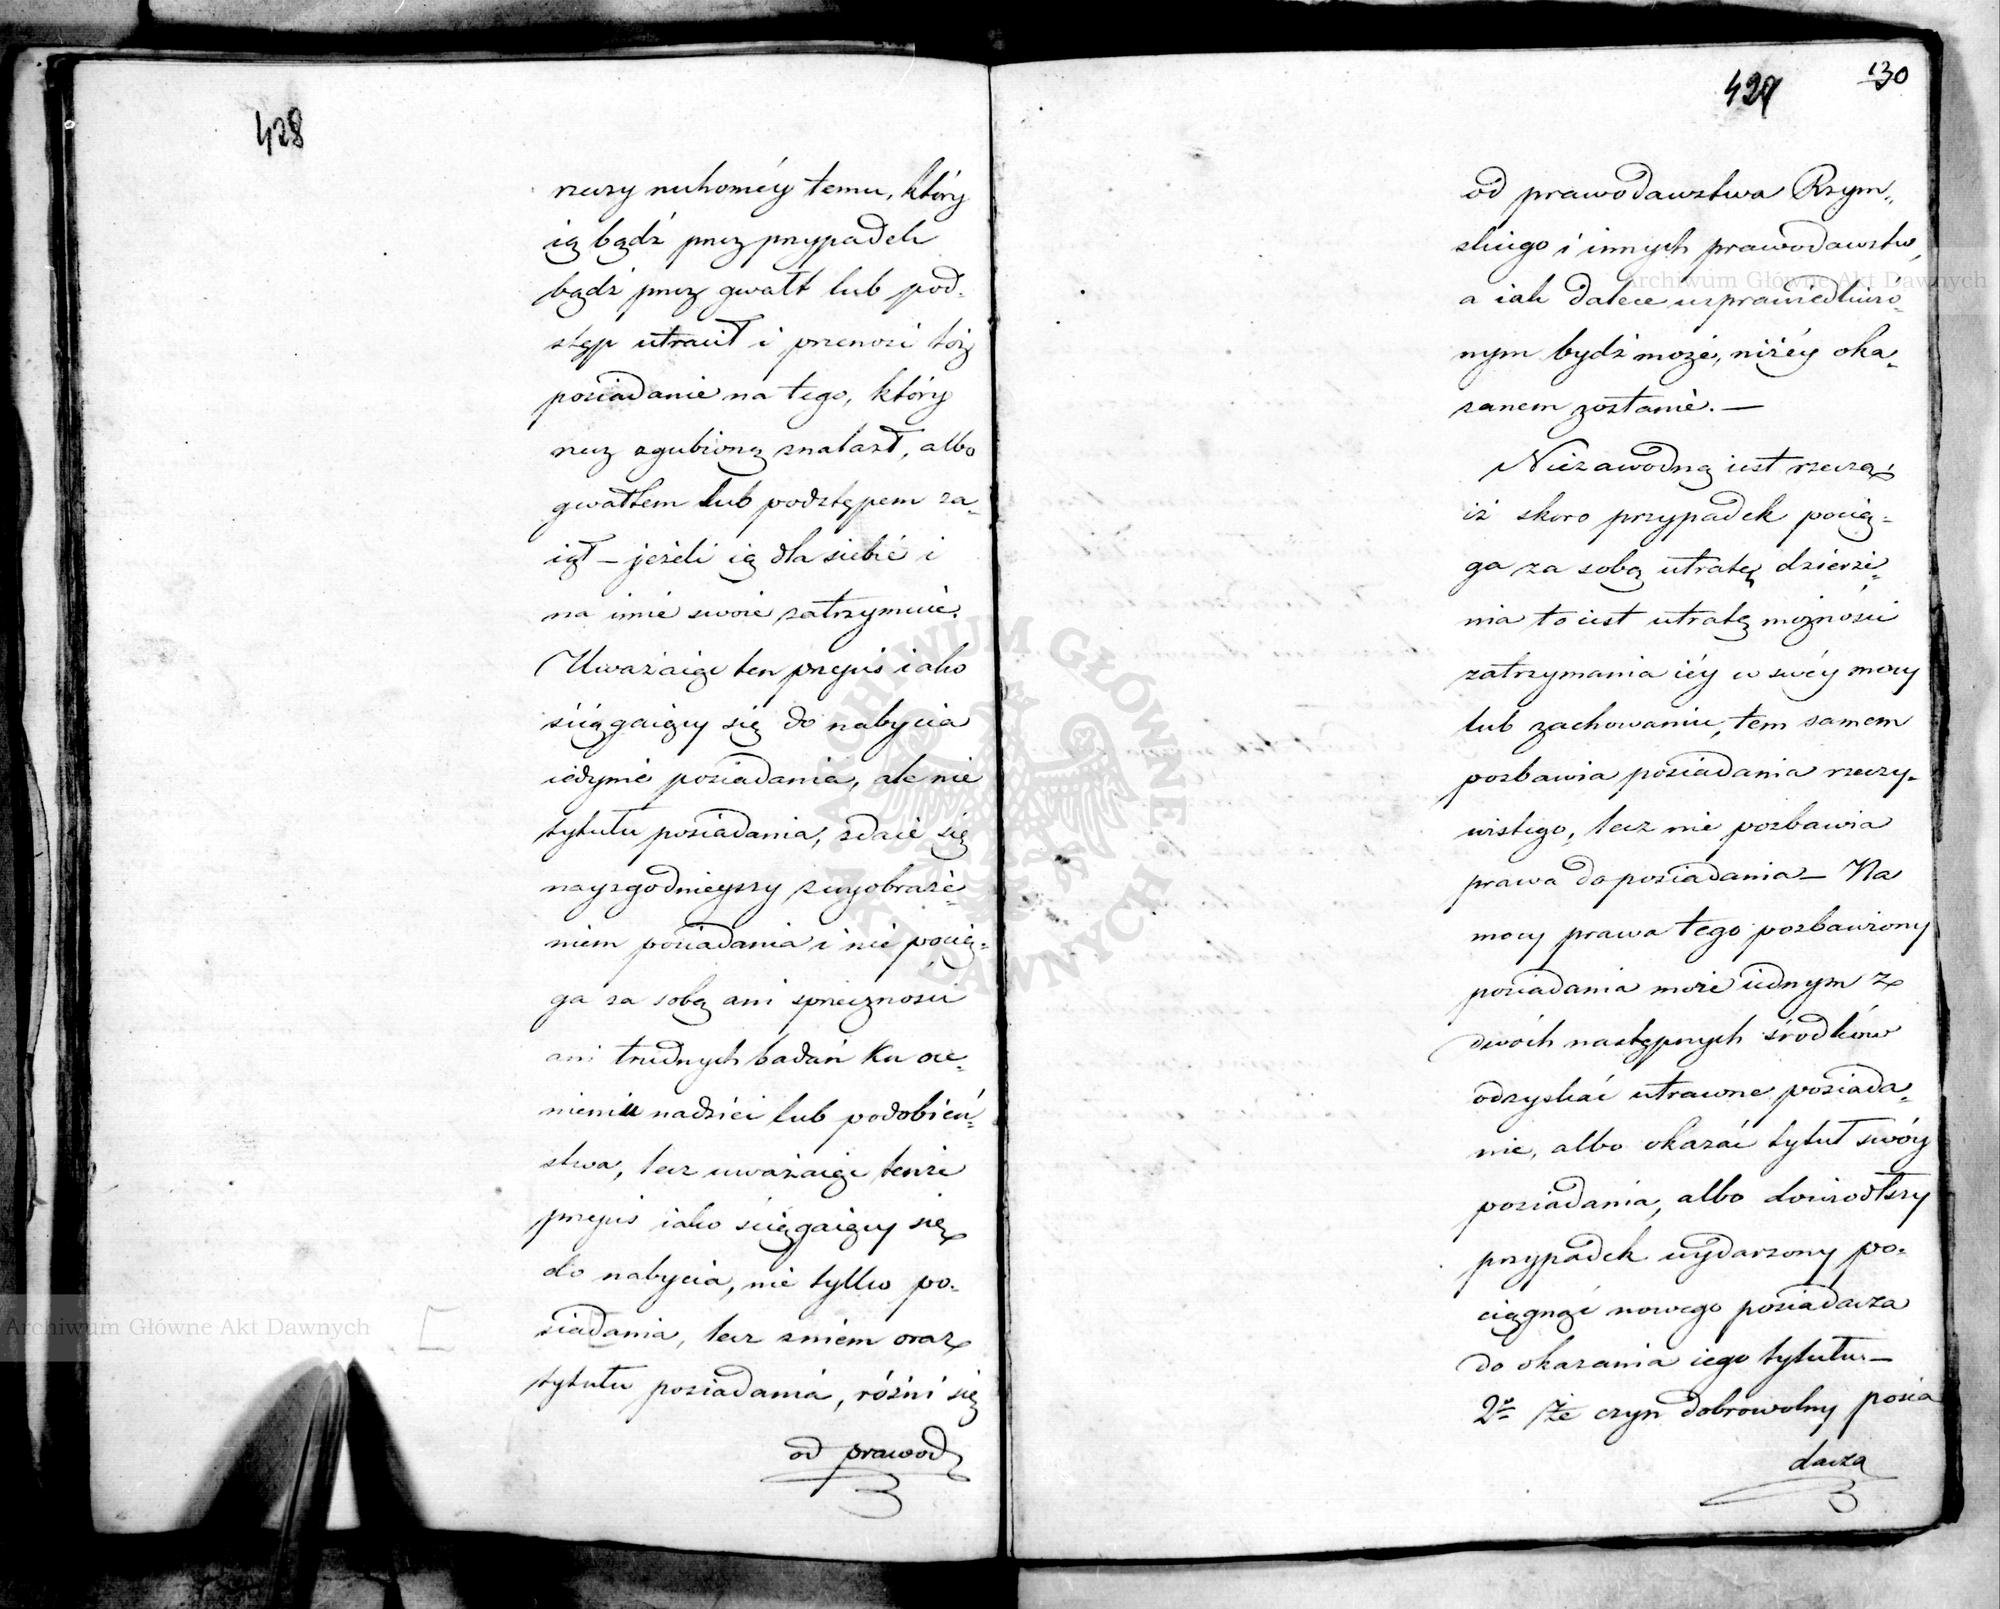 428
rzeczy ruchoméy temu, który
ią bądź przez przypadek
bądź przez gwałt lub pod-
stęp utracił i przenosi toż
posiadanie na tego, który
rzecz zgubioną znalazł, albo
gwałtem lub podstępem za-
iął – jeżeli ią dla siebie i
na imie swoie zatrzymuie.
Uważaiąc ten przepis iako
ściągaiący się do nabycia
iedynie posiadania, ale nie
tytułu posiadania, zdaie się
nayzgodnieyszy z wyobraże-
niem posiadania i nie pocią-
ga za sobą ani sprzeczności
ani trudnych badań ku oce-
nieniu nadziei lub podobień-
stwa, lecz uważaiąc tenże
przepis iako ściągaiący się
do nabycia, nie tylko po-
siadania, lecz zniem oraz
tytułu posiadania, różni się
od prawod
429
130
od prawodawstwa Rzym-
skiego i innych prawodawstw,
a iak dalece usprawiedliwio-
nym bydź może, niżéy oka-
zanem zostanie. —
Niezawodną iest rzeczą,
iż skoro przypadek pocią-
ga za sobą utratę dzierże-
nia to iest utratę możności
zatrzymania iéy w swéy mocy
lub zachowaniu, tem samem
pozbawia posiadania rzeczy-
wistego, lecz nie pozbawia
prawa do posiadania – Na
mocy prawa tego pozbawiony
posiadania może iednym z
dwóch następnych środków
odzyskać utracone posiada-
nie, albo okazać tytuł swóy
posiadania, albo dowiodłszy
przypadek wydarzony po-
ciągnąć nowego posiadacza
do okazania iego tytułu –
2re Że czyn dobrowolny posia
dacza
Archiwum Główne Akt Dawnych
Archiwum Główne Akt Dawnych
ARCHIWUM GŁÓWNE AKT DAWNYCH